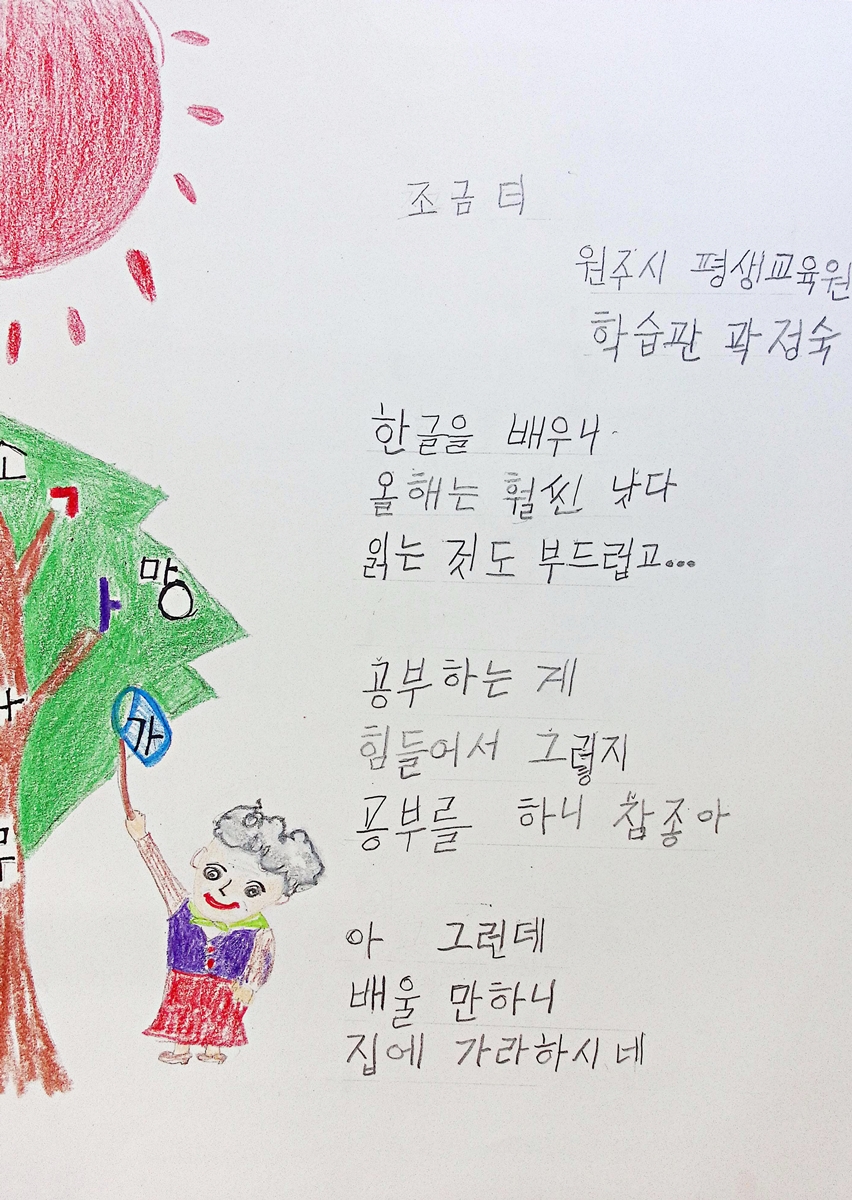 조금 더
원주시 평생교육원
학습관 곽정숙
한글을 배우니
올해는 훨씬 낫다
읽는 것도 부드럽고...
공부하는 게
힘들어서 그렇지
공부를 하니 참 좋아
아 그런데
배울 만하니
집에 가라하시네
소
ㄱ
망
ㅏ
가